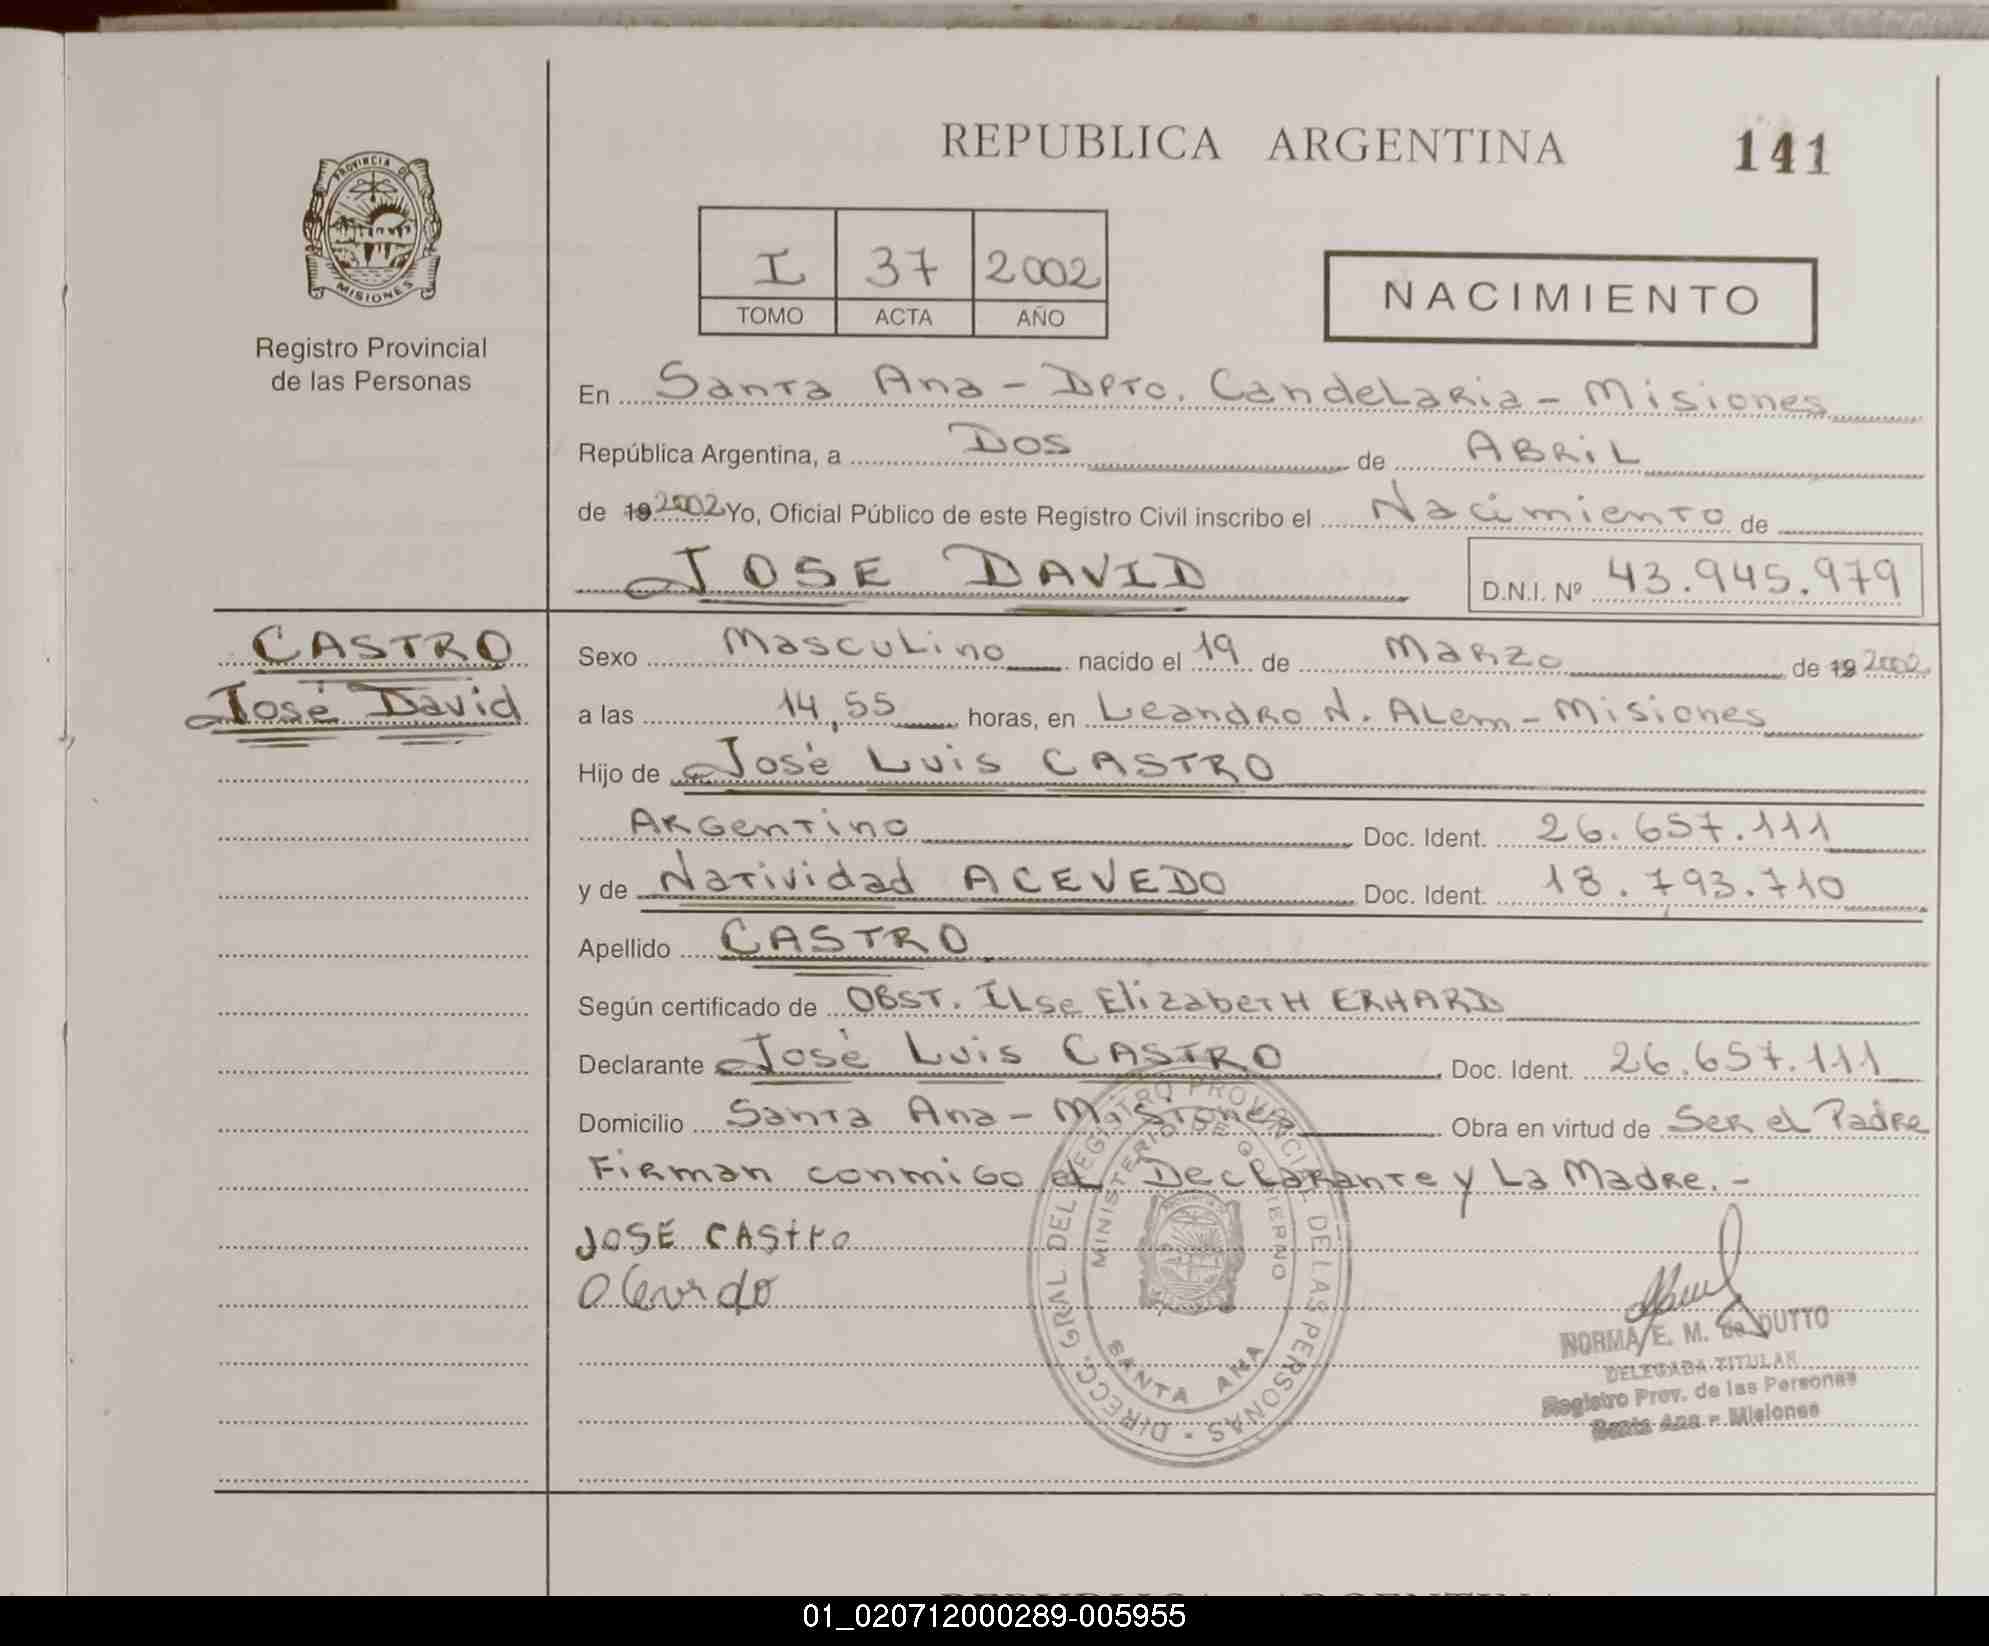 REPUBLICA ARGENTINA
141
PROVINCIA DE
MISIONES
Registro Provincial
de las Personas
I 37 2002
TOMO ACTA AÑO
NACIMIENTO
En Santa Ana - Dpto. Candelaria - Misiones
República Argentina, a Dos de Abril
de 19 2002 Yo, Oficial Público de este Registro Civil inscribo el Nacimiento de
JOSE DAVID D.N.I. Nº 43.945.979
CASTRO
José David
Sexo Masculino nacido el 19 de Marzo de 19 2002
a las 14,55 horas, en Leandro N. Alem - Misiones
Hijo de José Luis CASTRO
Argentino Doc. Ident. 26.657.111
y de Natividad ACEVEDO Doc. Ident. 18.793.710
Apellido CASTRO
Según certificado de Obst. Ilse Elizabeth ERHARD
Declarante José Luis CASTRO Doc. Ident. 26.657.111
Domicilio Santa Ana - Misiones Obra en virtud de Ser el Padre
Firman conmigo el Declarante y La Madre. -
JOSE CAStro
DIRECC. GRAL DEL REGISTRO PROVINCIAL DE LAS PERSONAS
MINISTERIO DE GOBIERNO
SANTA ANA
NORMA E. M. de DUTTO
DELEGADA TITULAR
Registro Prov. de las Personas
Santa Ana - Misiones
01_020712000289-005955